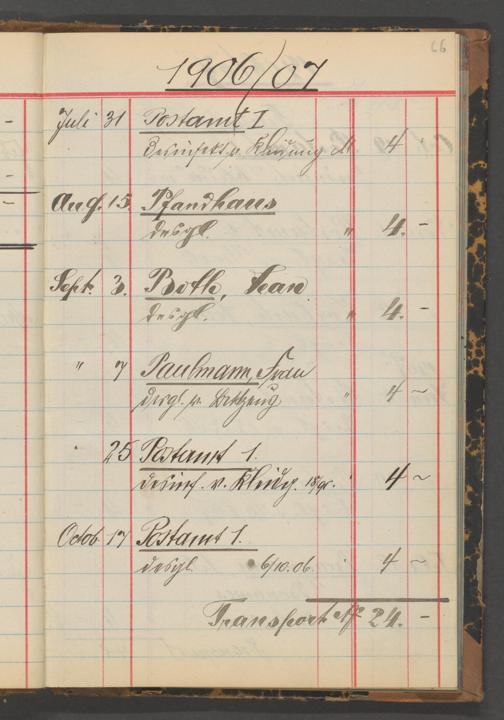 66
1906/07
Juli 31 Postamt I
Desinfekt. v. Kleidung M. 4 -
Aug. 15. Pfandhaus
desgl. " 4. -
Sept. 3. Both, Frau
desgl. " 4. -
" 7 Paulmann, Frau
desgl. v. Bettzeug " 4 -
25 Postamt 1.
desinf. v. Kleidg. " 4 -
Octob. 17 Postamt 1.
desgl. 6/10.06. " 4 -
Transport M 24. -